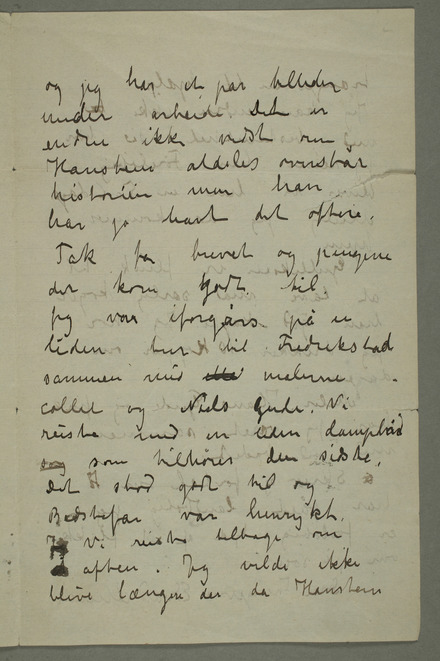 og jeg har et par billeder
under arbeide Det er
endnu ikke vedst om
Hansteen aldeles overstår
historien men han
har jo havt det oftere.
Tak for brevet og pengene
det kom godt til
Jeg var iforgårs på en
liden tur til Fredrikstad
sammen med malerne
Collet og Niels Gude. Vi
reiste med en liden dampbåd
som tilhører den sidste.
Det stod godt til og
Bedstefar var henrykt.
Vi reiste tilbage om
aften. Jeg vilde ikke
blive længer der da Hansteen